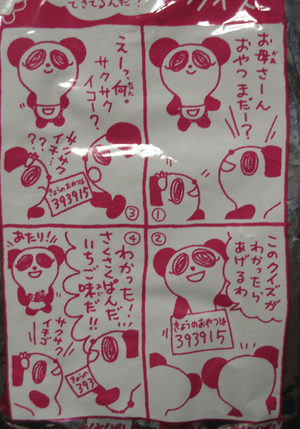 できてるんだ！
お母さーん
おやつまだー？
①
②
このクイズが
わかったら
あげるわ
きょうのおやつは
393915
えーっ、何。
サクサク
イコー？
？？
きょうのおやつは
393915
③
④
わかった！…
さくさくぱんだ
いちご味だ！！
393
あたり！
サクサク
イチゴ